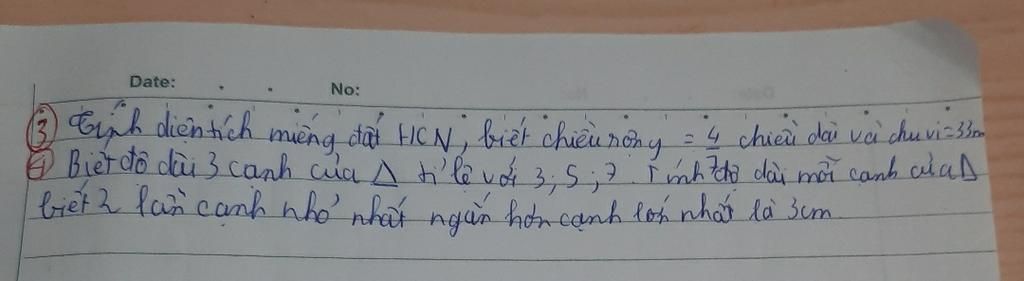 Date: No:
3 Tính diện tích miếng đất HCN, biết chiều rộng = 4/7 chiều dài và chu vi = 33m
4 Biết độ dài 3 cạnh của Δ tỉ lệ với 3; 5; 7. Tính độ dài mỗi cạnh của Δ
biết 2 lần cạnh nhỏ nhất ngắn hơn cạnh lớn nhất là 3cm